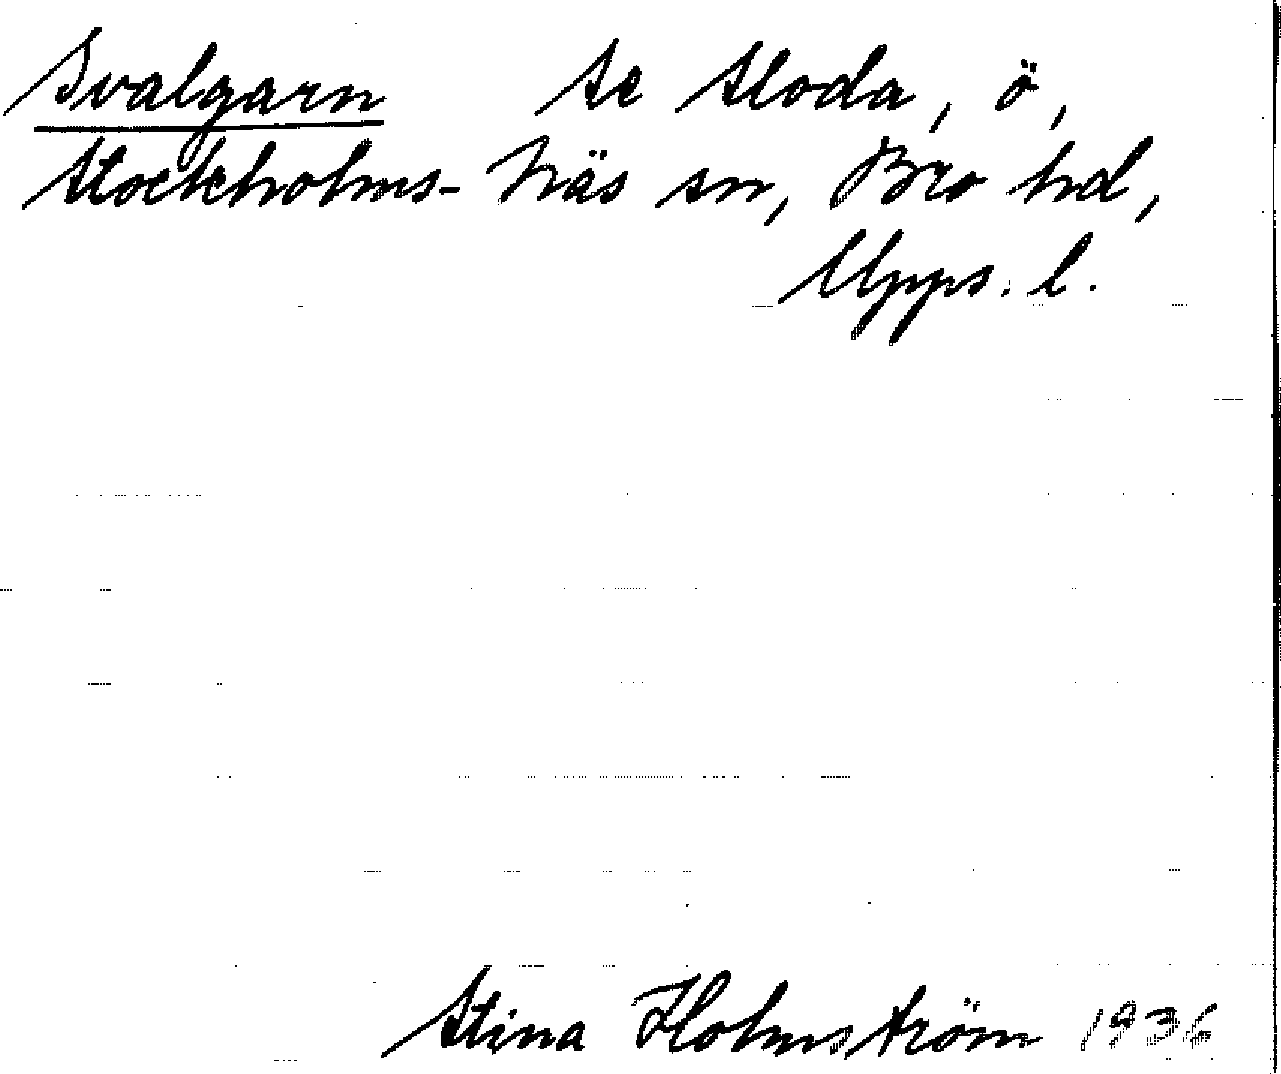 Svalgarn Se Skoda, ö,
Stockholms-Näs sn, Bro hd,
Upps. l.
Stina Holmström 1936